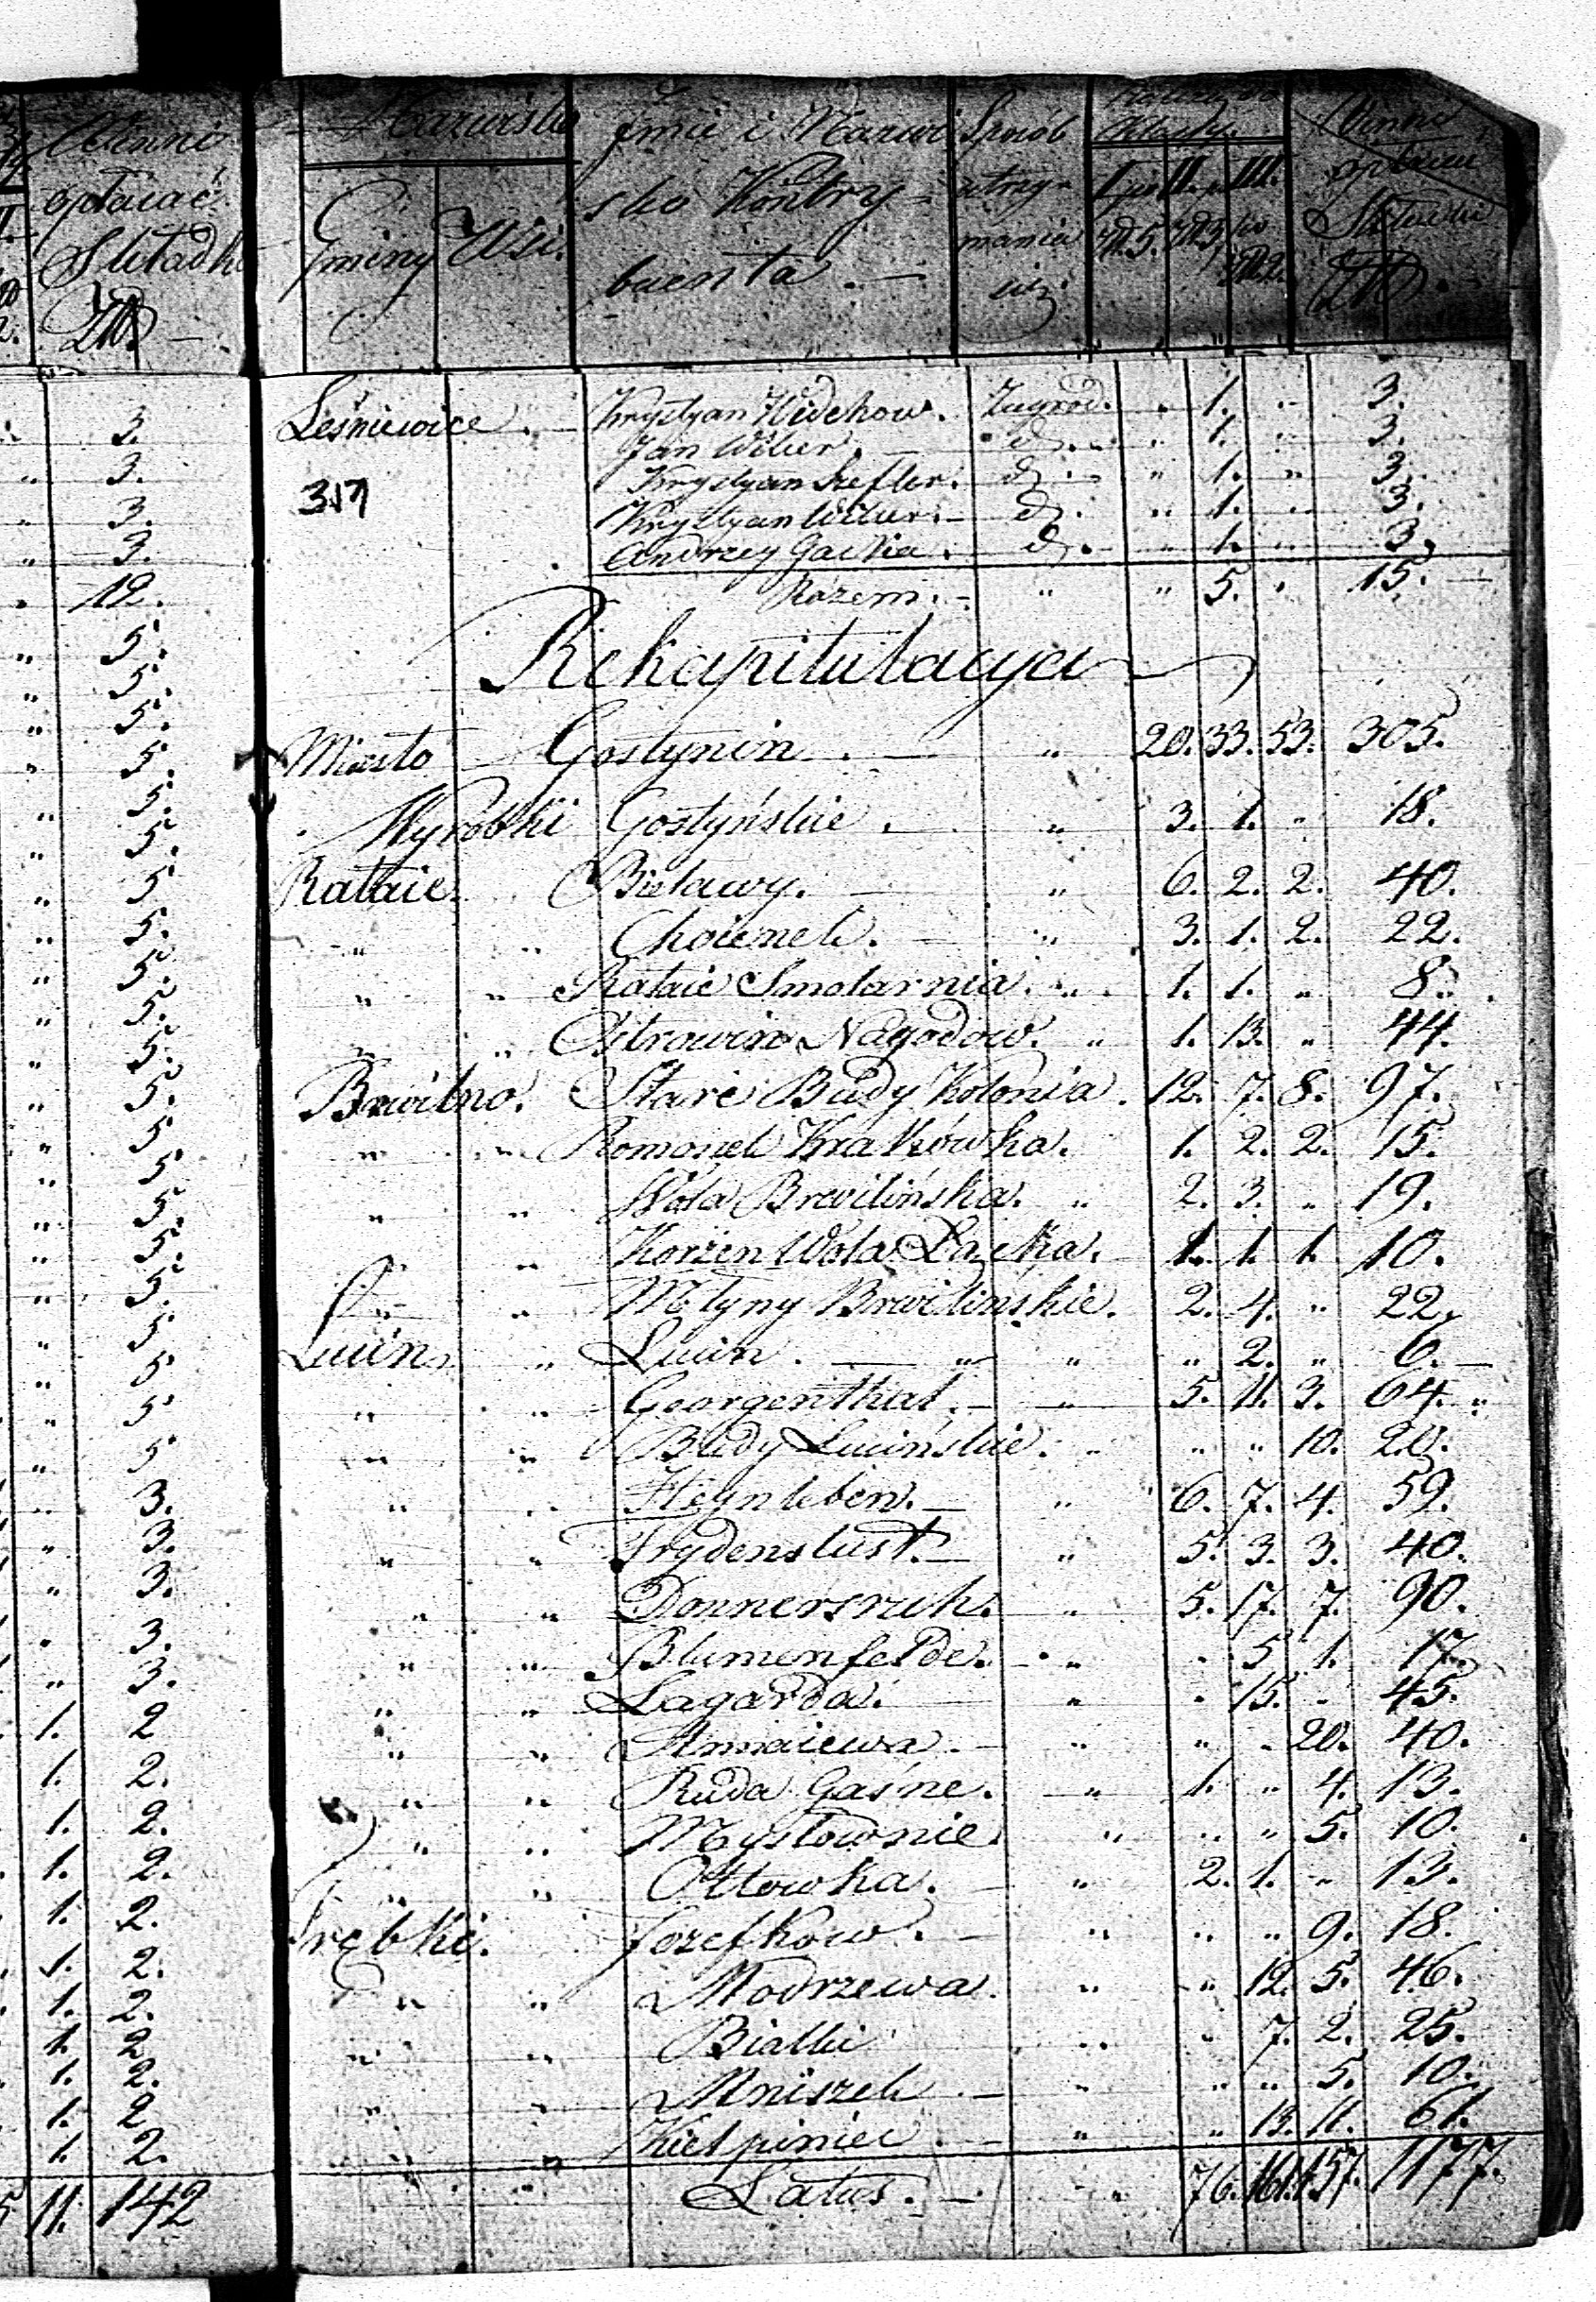 Winni
opłacać
Składki
Złł.
3.
3.
3.
3.
12.
5.
5.
5.
5.
5.
5.
5.
5.
5.
5.
5.
5.
5.
5.
5.
5.
5.
5.
5.
5.
5.
3.
3.
3.
3.
3.
1. 2
1. 2.
1. 2.
1. 2.
1. 2.
1. 2.
1. 2.
1. 2
1. 2.
1. 2
1. 2.
5 11. 142
Nazwisko
Gminy Wsi.
Imie i Nazwi
sko Kontry-
buenta. —
Sposób
utrzy-
mania
się
Klassy.
I po II. po III.
Zł. 5. Zł. 3. po
Zł. 2.
Winni
opłacać
Składki
Złł.
Leśniewice. Krystyan Widekow. Zagrod. " 1. " 3.
Jan Witur. — d. " 1. " 3.
317 Krystyan Hefler. d. " 1. " 3.
Krystyan Witur. — d. " 1. " 3.
Andrzey Gaska. d. " 1. " 3.
Razem. — " " 5. " 15. —
Rekapitulacya
Miasto Gostynin. — " 20. 33. 53. 305.
Wyrobki Gostyńskie. " 3. 1. " 18.
Rataie. Bielawy. — " 6. 2. 2. 40.
" " Choinek. — " 3. 1. 2. 22.
" " Rataie Smolarnia. " 1. 1. " 8.
" " Ostrowin Nagodow. " 1. 13. " 44.
Brwilno. Stare Budy Kolonia. 12. 7. 8. 97.
" " Romonek Krakówka. 1. 2. 2. 15.
" " Wola Brwilińska. " 2. 3. " 19.
" Korzen Wola Łącka. 1. 1. 1. 10.
" " Młyny Brwilińskie. 2. 4. " 22.
Lucin. " Lucin. — " " " 2. " 6. —
" " Georgenthal. — " 5. 11. 3. 64. "
" " Budy Lucińskie. " " " 10. 20.
" " Heynleben. — " 6. 7. 4. 59.
" " Frydenslust. — " 5. 3. 3. 40.
" " Donnersruh. " 5. 17. 7. 90.
" " Blumenfelde. — " " 5. 1. 17.
" " Lagarda. — " " 15. " 45.
" " Annaiewa. — " " " 20. 40.
" " Ruda Gaśne. " 1. " 4. 13.
" " Mysłownie. " " " 5. 10.
" " Ottowka. — " 2. 1. " 13.
Trębki. Jozefkow. — " " " 9. 18.
" " Modrzewa. " " 12. 5. 46.
" " Białki " " 7. 2. 25.
" " Mniszek. — " " " 5. 10.
" " Kiełpiniec. — " " 13. 11. 61.
Latus. — 76. 161. 157. 1177.